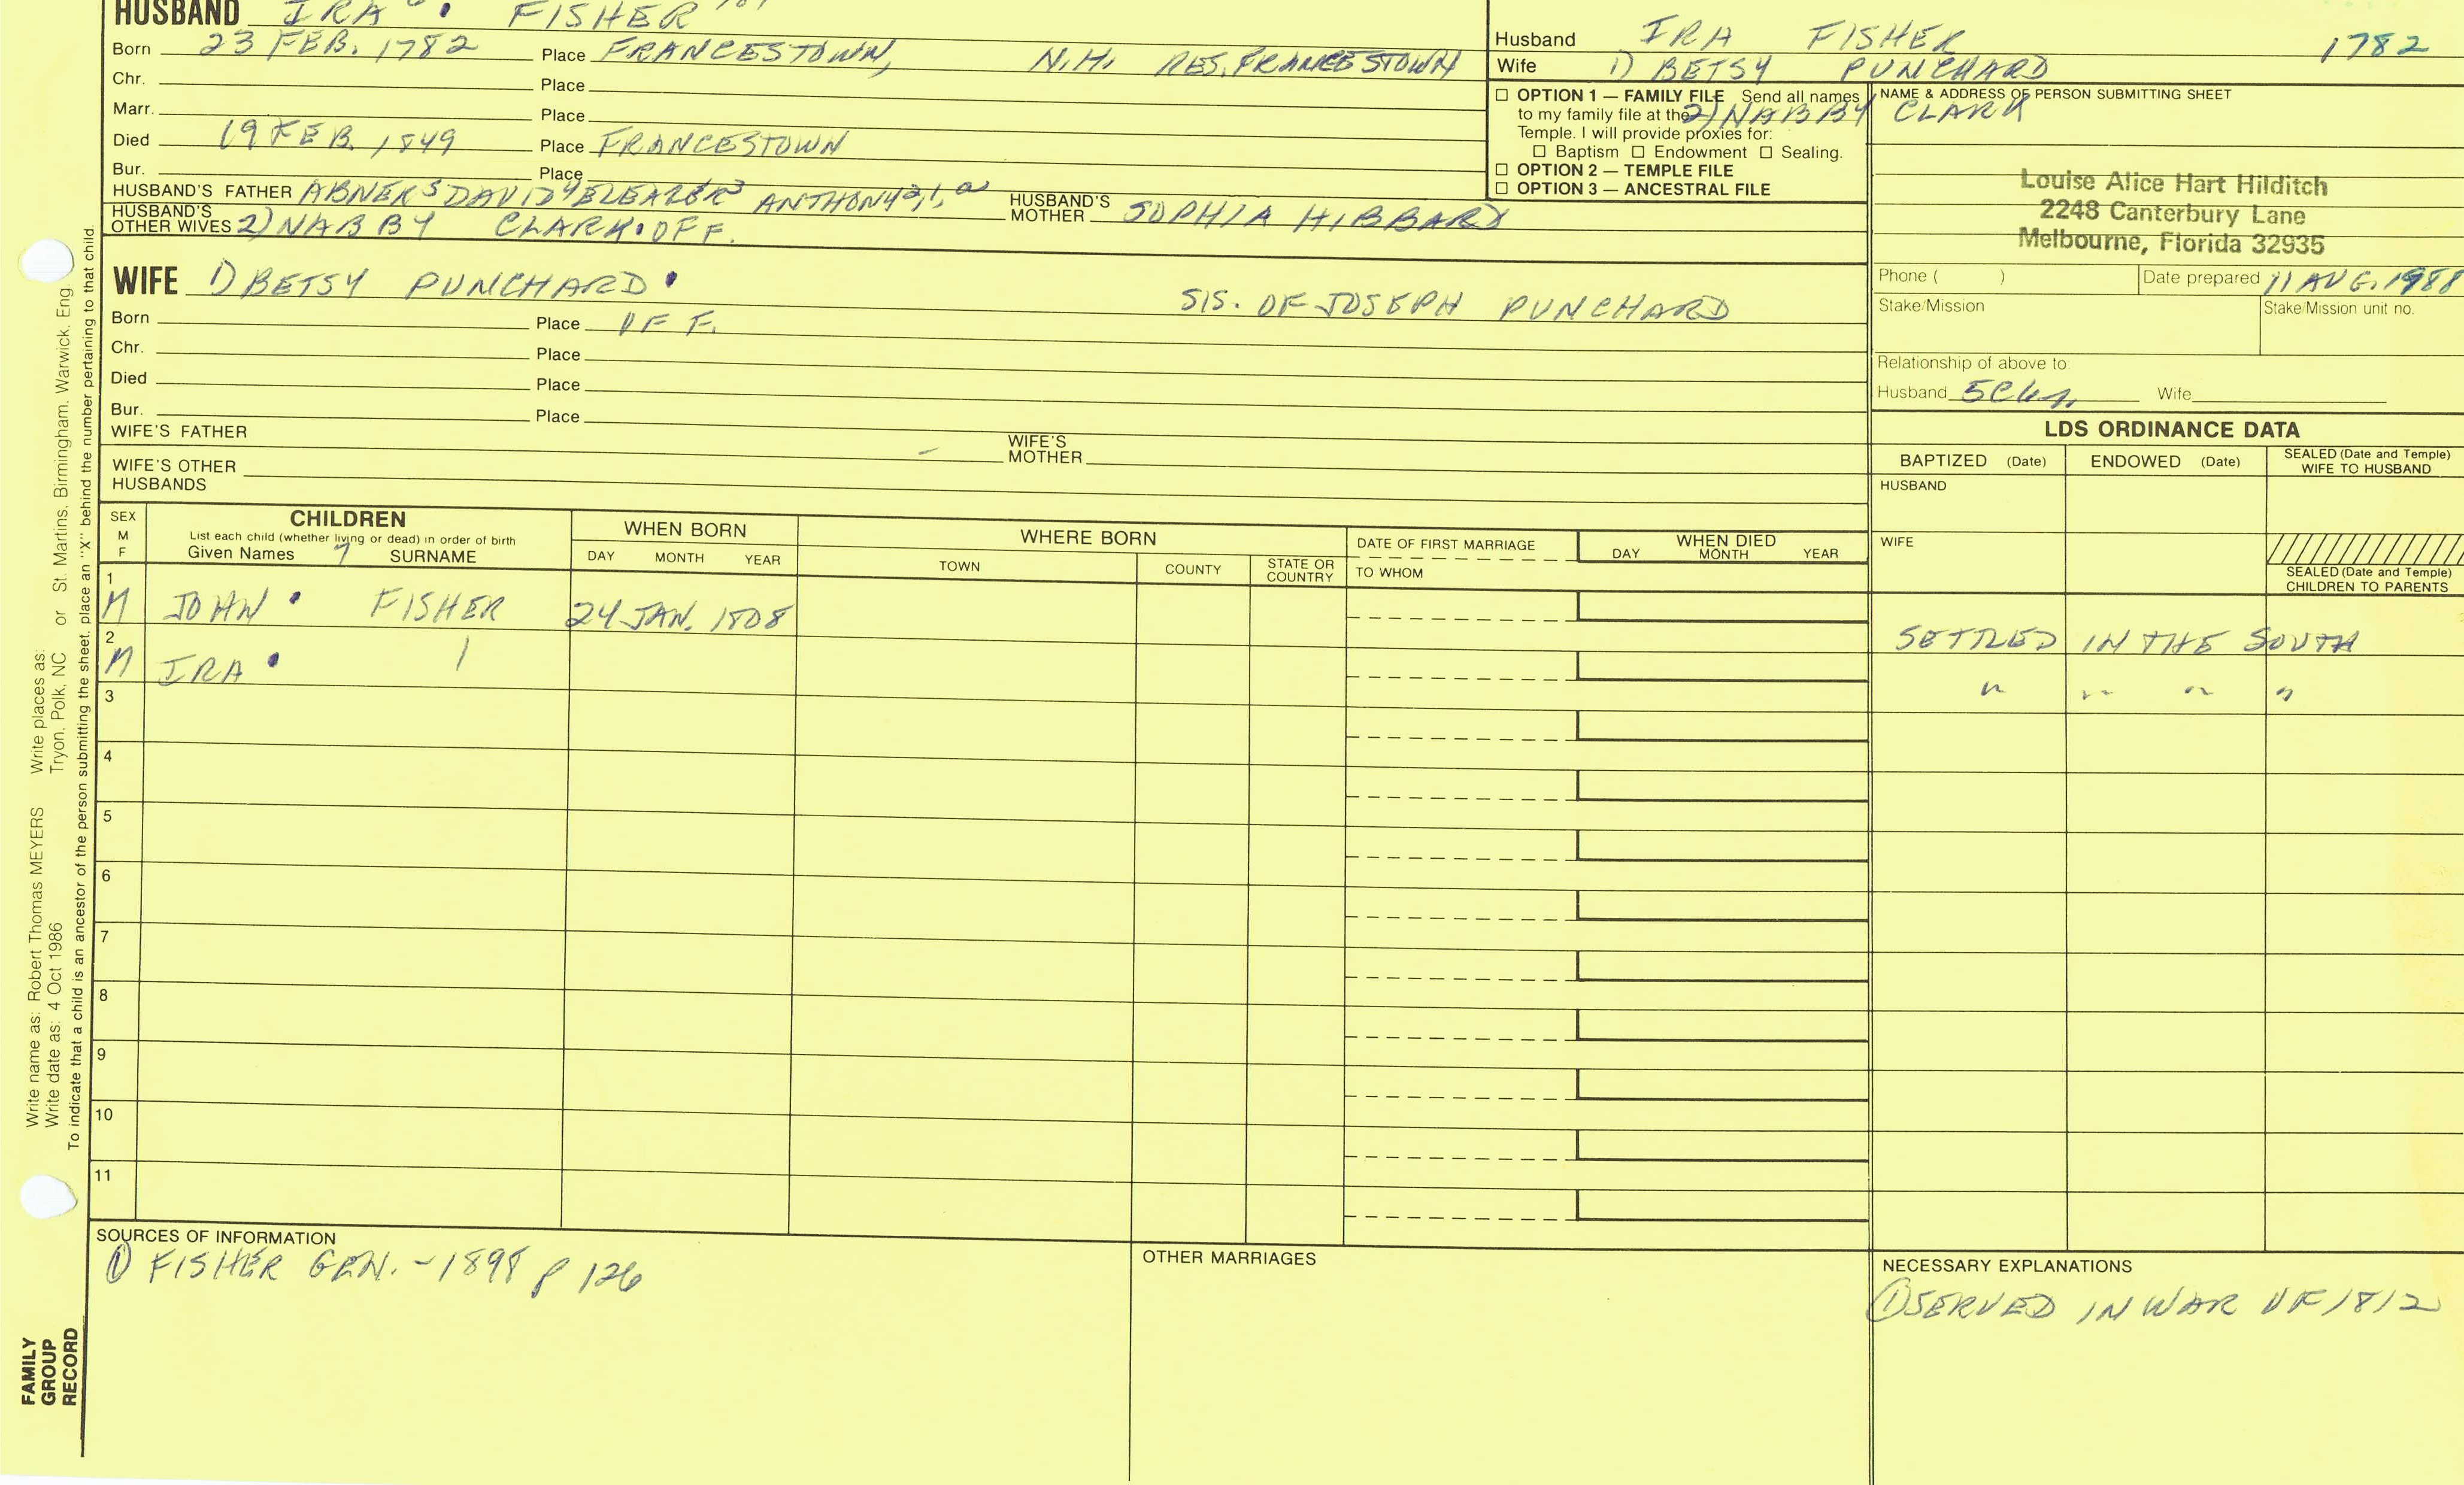 HUSBAND IRA FISHER
Born 23 FEB. 1782 Place FRANCESTOWN, N.H. RES. FRANCESTOWN
Chr. Place
Marr. Place
Died 19 FEB. 1849 Place FRANCESTOWN
Bur. Place
HUSBAND'S FATHER ABNER5 DAVID4 ELEAZER3 ANTHONY2,1, HUSBAND'S MOTHER SOPHIA HIBBARD
HUSBAND'S OTHER WIVES 2) NABBY CLARK. OF F.
Husband IRA FISHER 1782
Wife 1) BETSY PUNCHARD
2) NABBY CLARK
☐ OPTION 1 — FAMILY FILE Send all names
to my family file at the
Temple. I will provide proxies for:
☐ Baptism ☐ Endowment ☐ Sealing.
☐ OPTION 2 — TEMPLE FILE
☐ OPTION 3 — ANCESTRAL FILE
NAME & ADDRESS OF PERSON SUBMITTING SHEET
Louise Alice Hart Hilditch
2248 Canterbury Lane
Melbourne, Florida 32935
Phone ( ) Date prepared 11 AUG. 1988
Stake/Mission Stake/Mission unit no.
Relationship of above to:
Husband Wife
WIFE 1) BETSY PUNCHARD SIS. OF JOSEPH PUNCHARD
Born Place OF F.
Chr. Place
Died Place
Bur. Place
WIFE'S FATHER WIFE'S MOTHER
WIFE'S OTHER HUSBANDS
LDS ORDINANCE DATA
BAPTIZED (Date) ENDOWED (Date) SEALED (Date and Temple) WIFE TO HUSBAND
HUSBAND
WIFE
SEALED (Date and Temple) CHILDREN TO PARENTS
SEX M F
CHILDREN
List each child (whether living or dead) in order of birth
Given Names SURNAME
WHEN BORN
DAY MONTH YEAR
WHERE BORN
TOWN COUNTY STATE OR COUNTRY
DATE OF FIRST MARRIAGE
TO WHOM
WHEN DIED
DAY MONTH YEAR
1 M JOHN FISHER 24 JAN. 1808 SETTLED IN THE SOUTH
2 M IRA " " " "
3
4
5
6
7
8
9
10
11
SOURCES OF INFORMATION
① FISHER GEN. - 1898 p 126
OTHER MARRIAGES
NECESSARY EXPLANATIONS
① SERVED IN WAR OF 1812
Write name as: Robert Thomas MEYERS Write places as: St. Martins, Birmingham, Warwick, Eng.
Write date as: 4 Oct 1986 Tryon, Polk, NC or
To indicate that a child is an ancestor of the person submitting the sheet, place an "X" behind the number pertaining to that child.
FAMILY
GROUP
RECORD